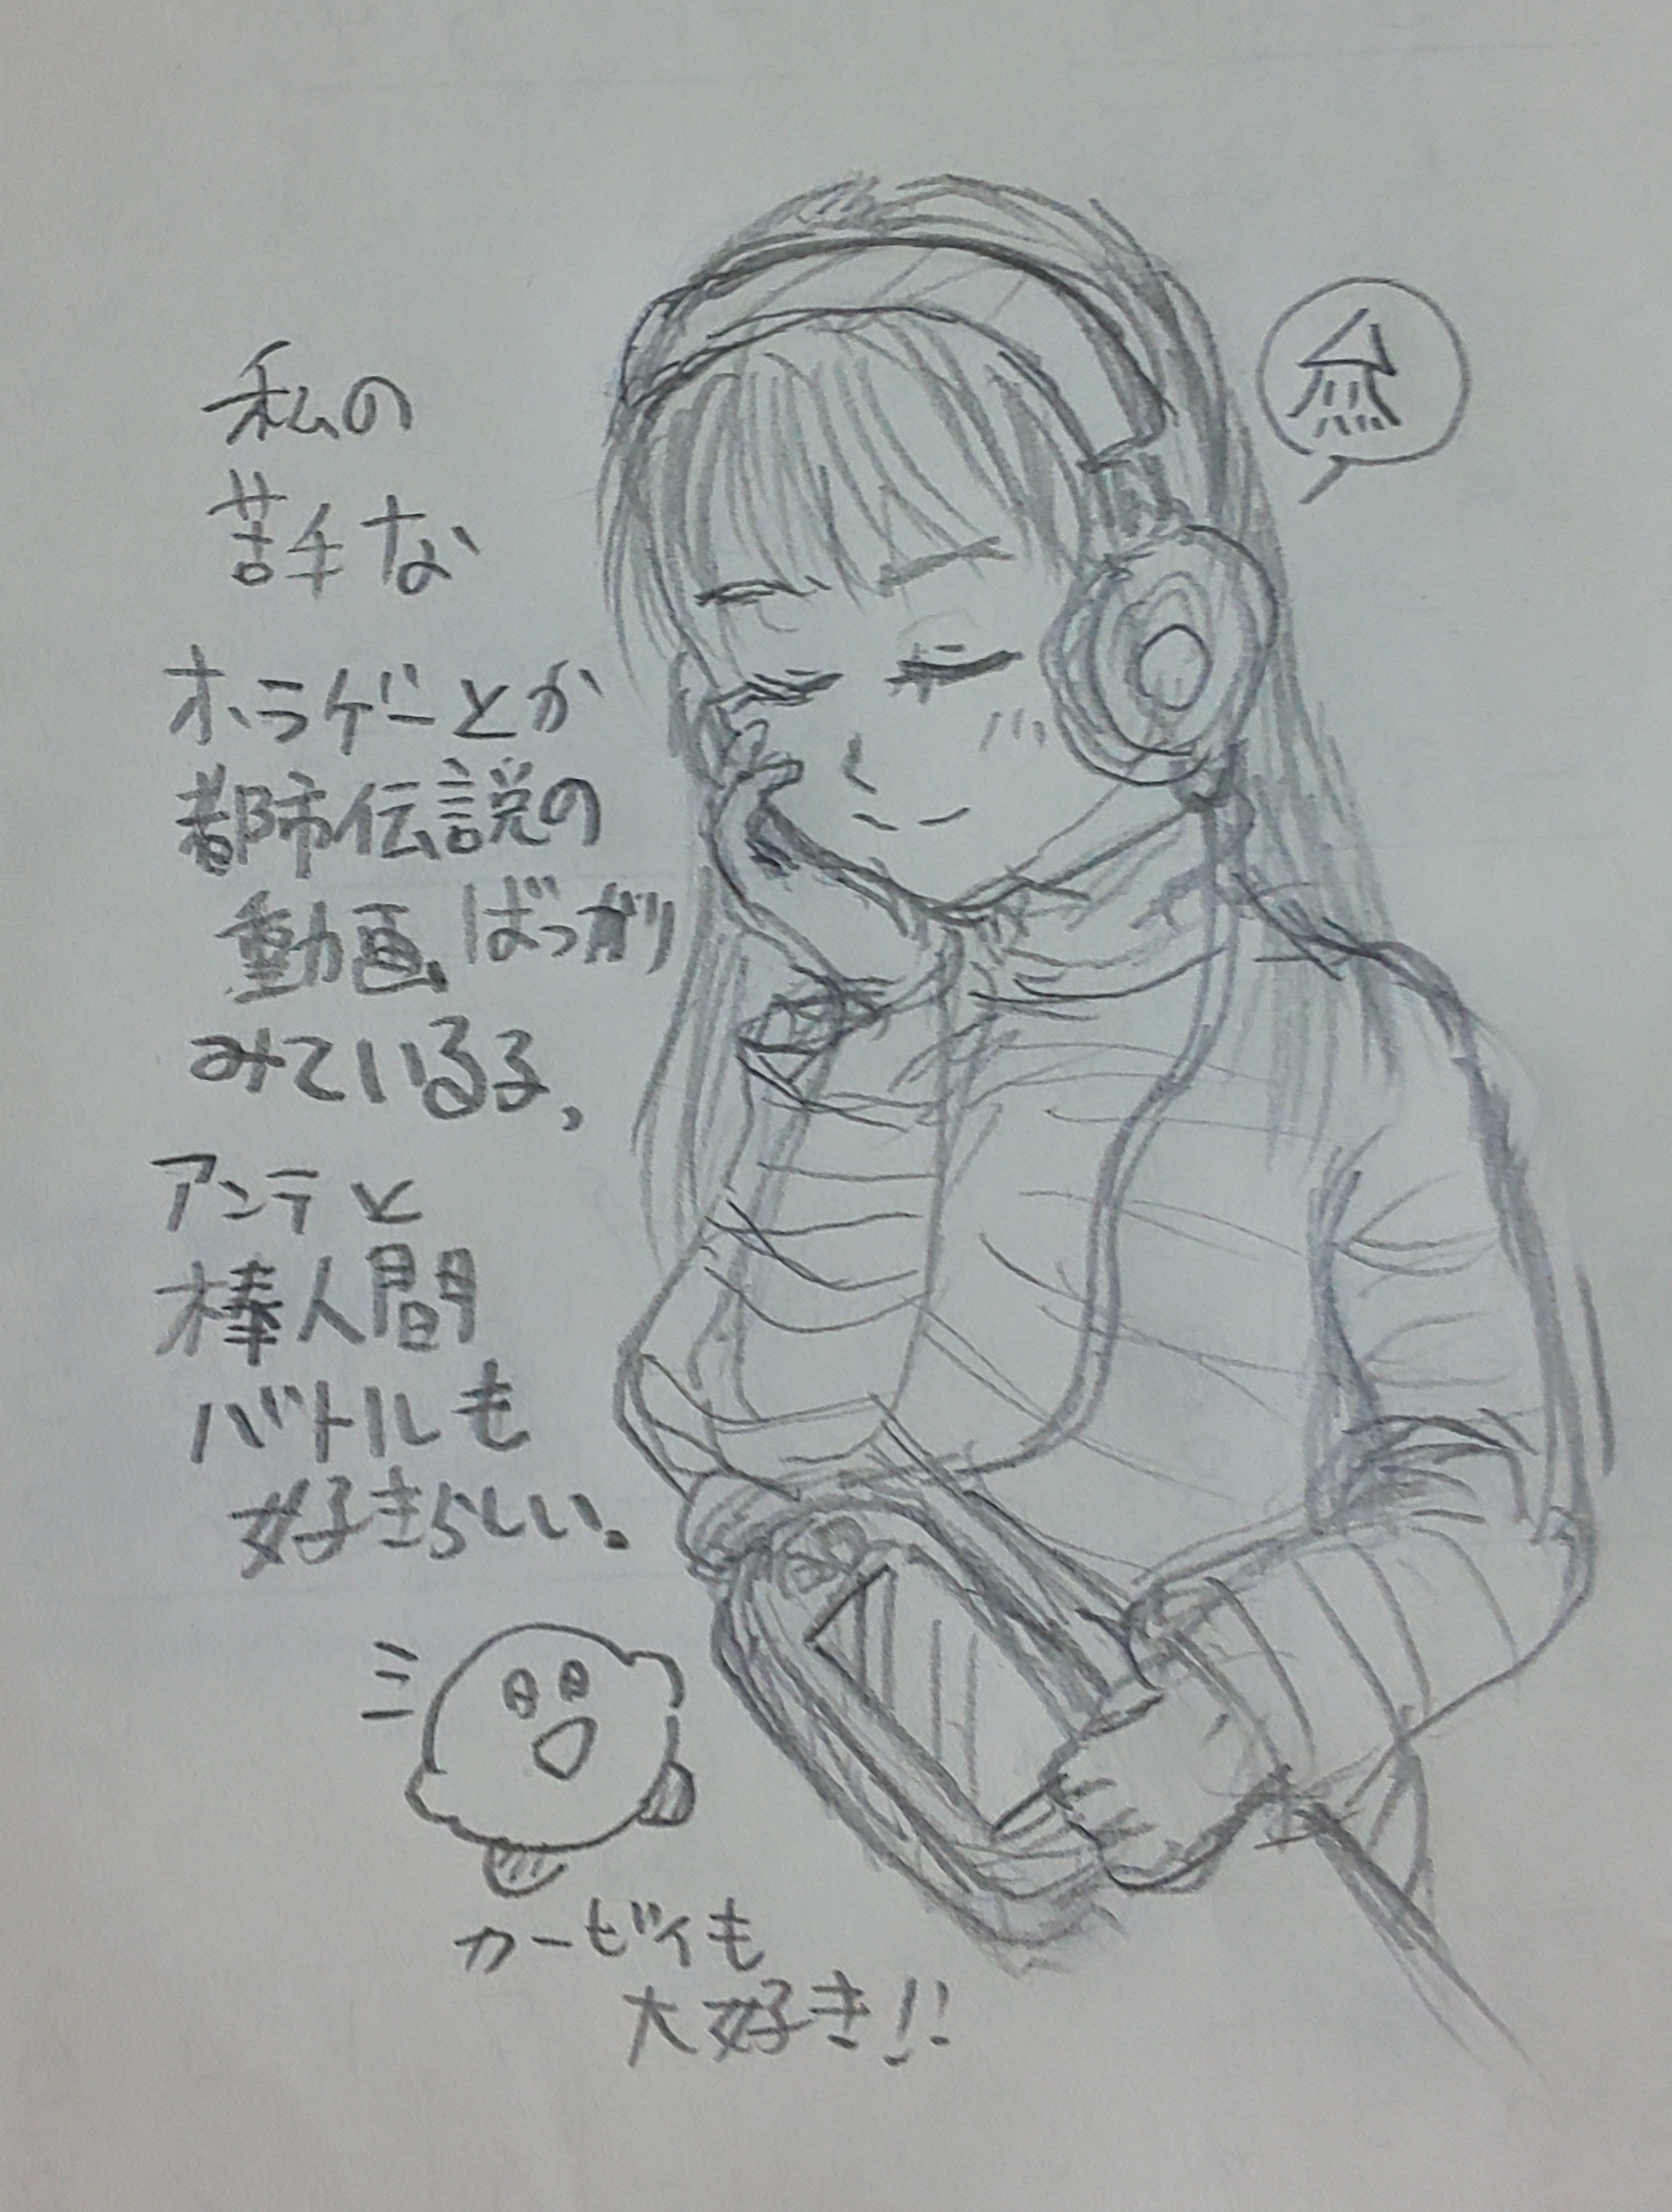 私の
苦手な
ホラゲーとか
都市伝説の
動画ばっかり
みている子、
アンテと
棒人間
バトルも
好きらしい。
カービィも
大好き!!